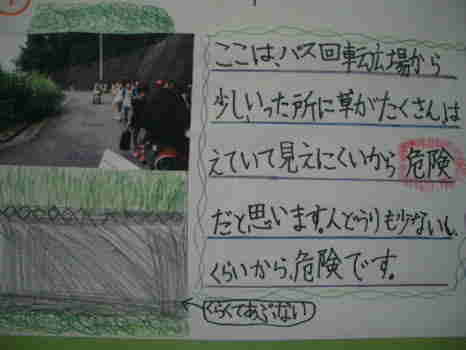 ここは、バス回転広場から
少しいった所に草がたくさんは
えていて見えにくいから危険
だと思います。人どうりも少ないし
くらいから、危険です。
くらくてあぶない